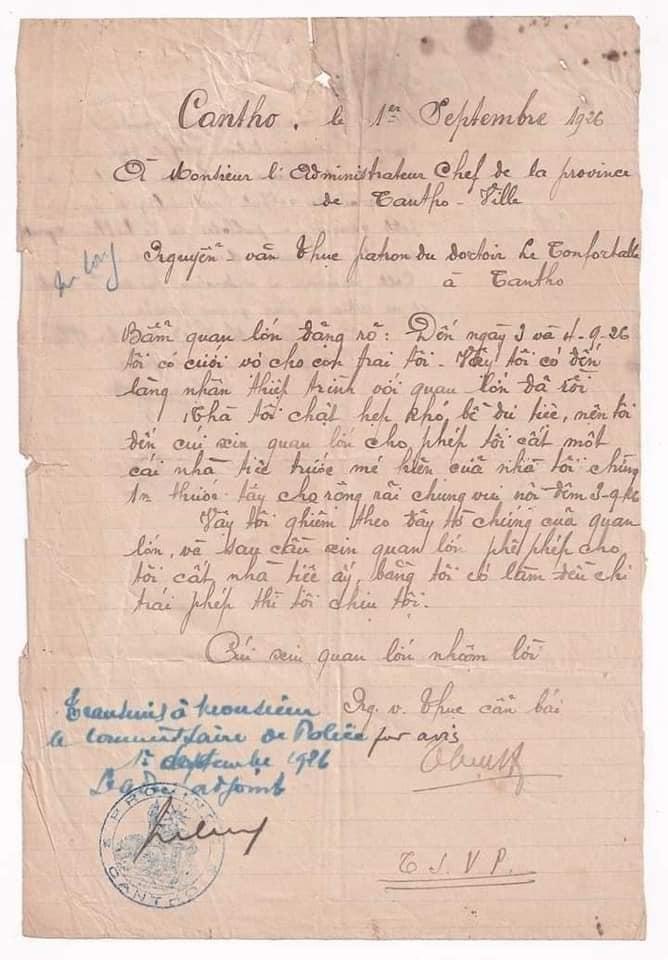 Cantho, le 1er Septembre 1926
À Monsieur l'Administrateur Chef de la province
de Cantho-Ville
Nguyễn-văn Thục patron du dortoir Le Confortable
à Cantho
Bẩm quan lớn đặng rõ: Đến ngày 3 và 4-9-26
tôi có cưới vợ cho con trai tôi. Vậy tôi có đến
làng nhân thiệp trình với quan lớn đã rồi
Nhà tôi chật hẹp khó bề dự tiệc, nên tôi
đến cúi xin quan lớn cho phép tôi cất một
cái nhà tiệc trước mé hiên của nhà tôi chừng
thước tây cho rộng rãi chung vui nội đêm 3-9-26
Vậy tôi ghiêm theo đây tờ chứng của quan
lớn, và sau cầu xin quan lớn phê phép cho
tôi cất nhà tiệc ấy, bằng tôi có làm đều chi
trái phép thì tôi chịu tội.
Cúi xin quan lớn nhậm lời
Ng. v. Thục cẩn bái
Transmis à Monsieur
le Commissaire de Police pour avis
1er septembre 1926
adjoint
PROVINCE
CANTHO
T. S. V. P.